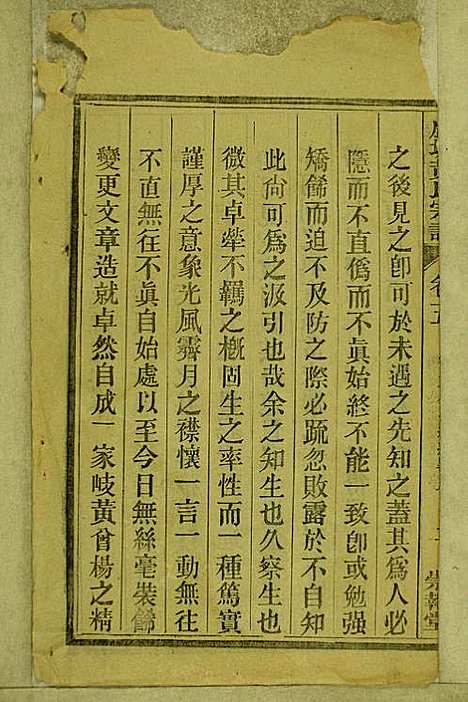 氏宗譜
之後見之卽可於未遇之先知之蓋其為人必
隱而不直僞而不眞始終不能一致卽或勉强
矯餙而迫不及防之際必疏忽敗露於不自知
此尙可為之汲引也哉余之知生也久察生也
微其卓犖不羈之概固生之率性而一種篤實
謹厚之意象光風霽月之襟懷一言一動無往
不直無往不眞自始處以至今日無絲毫裝餙
變更文章造就卓然自成一家岐黃曾楊之精